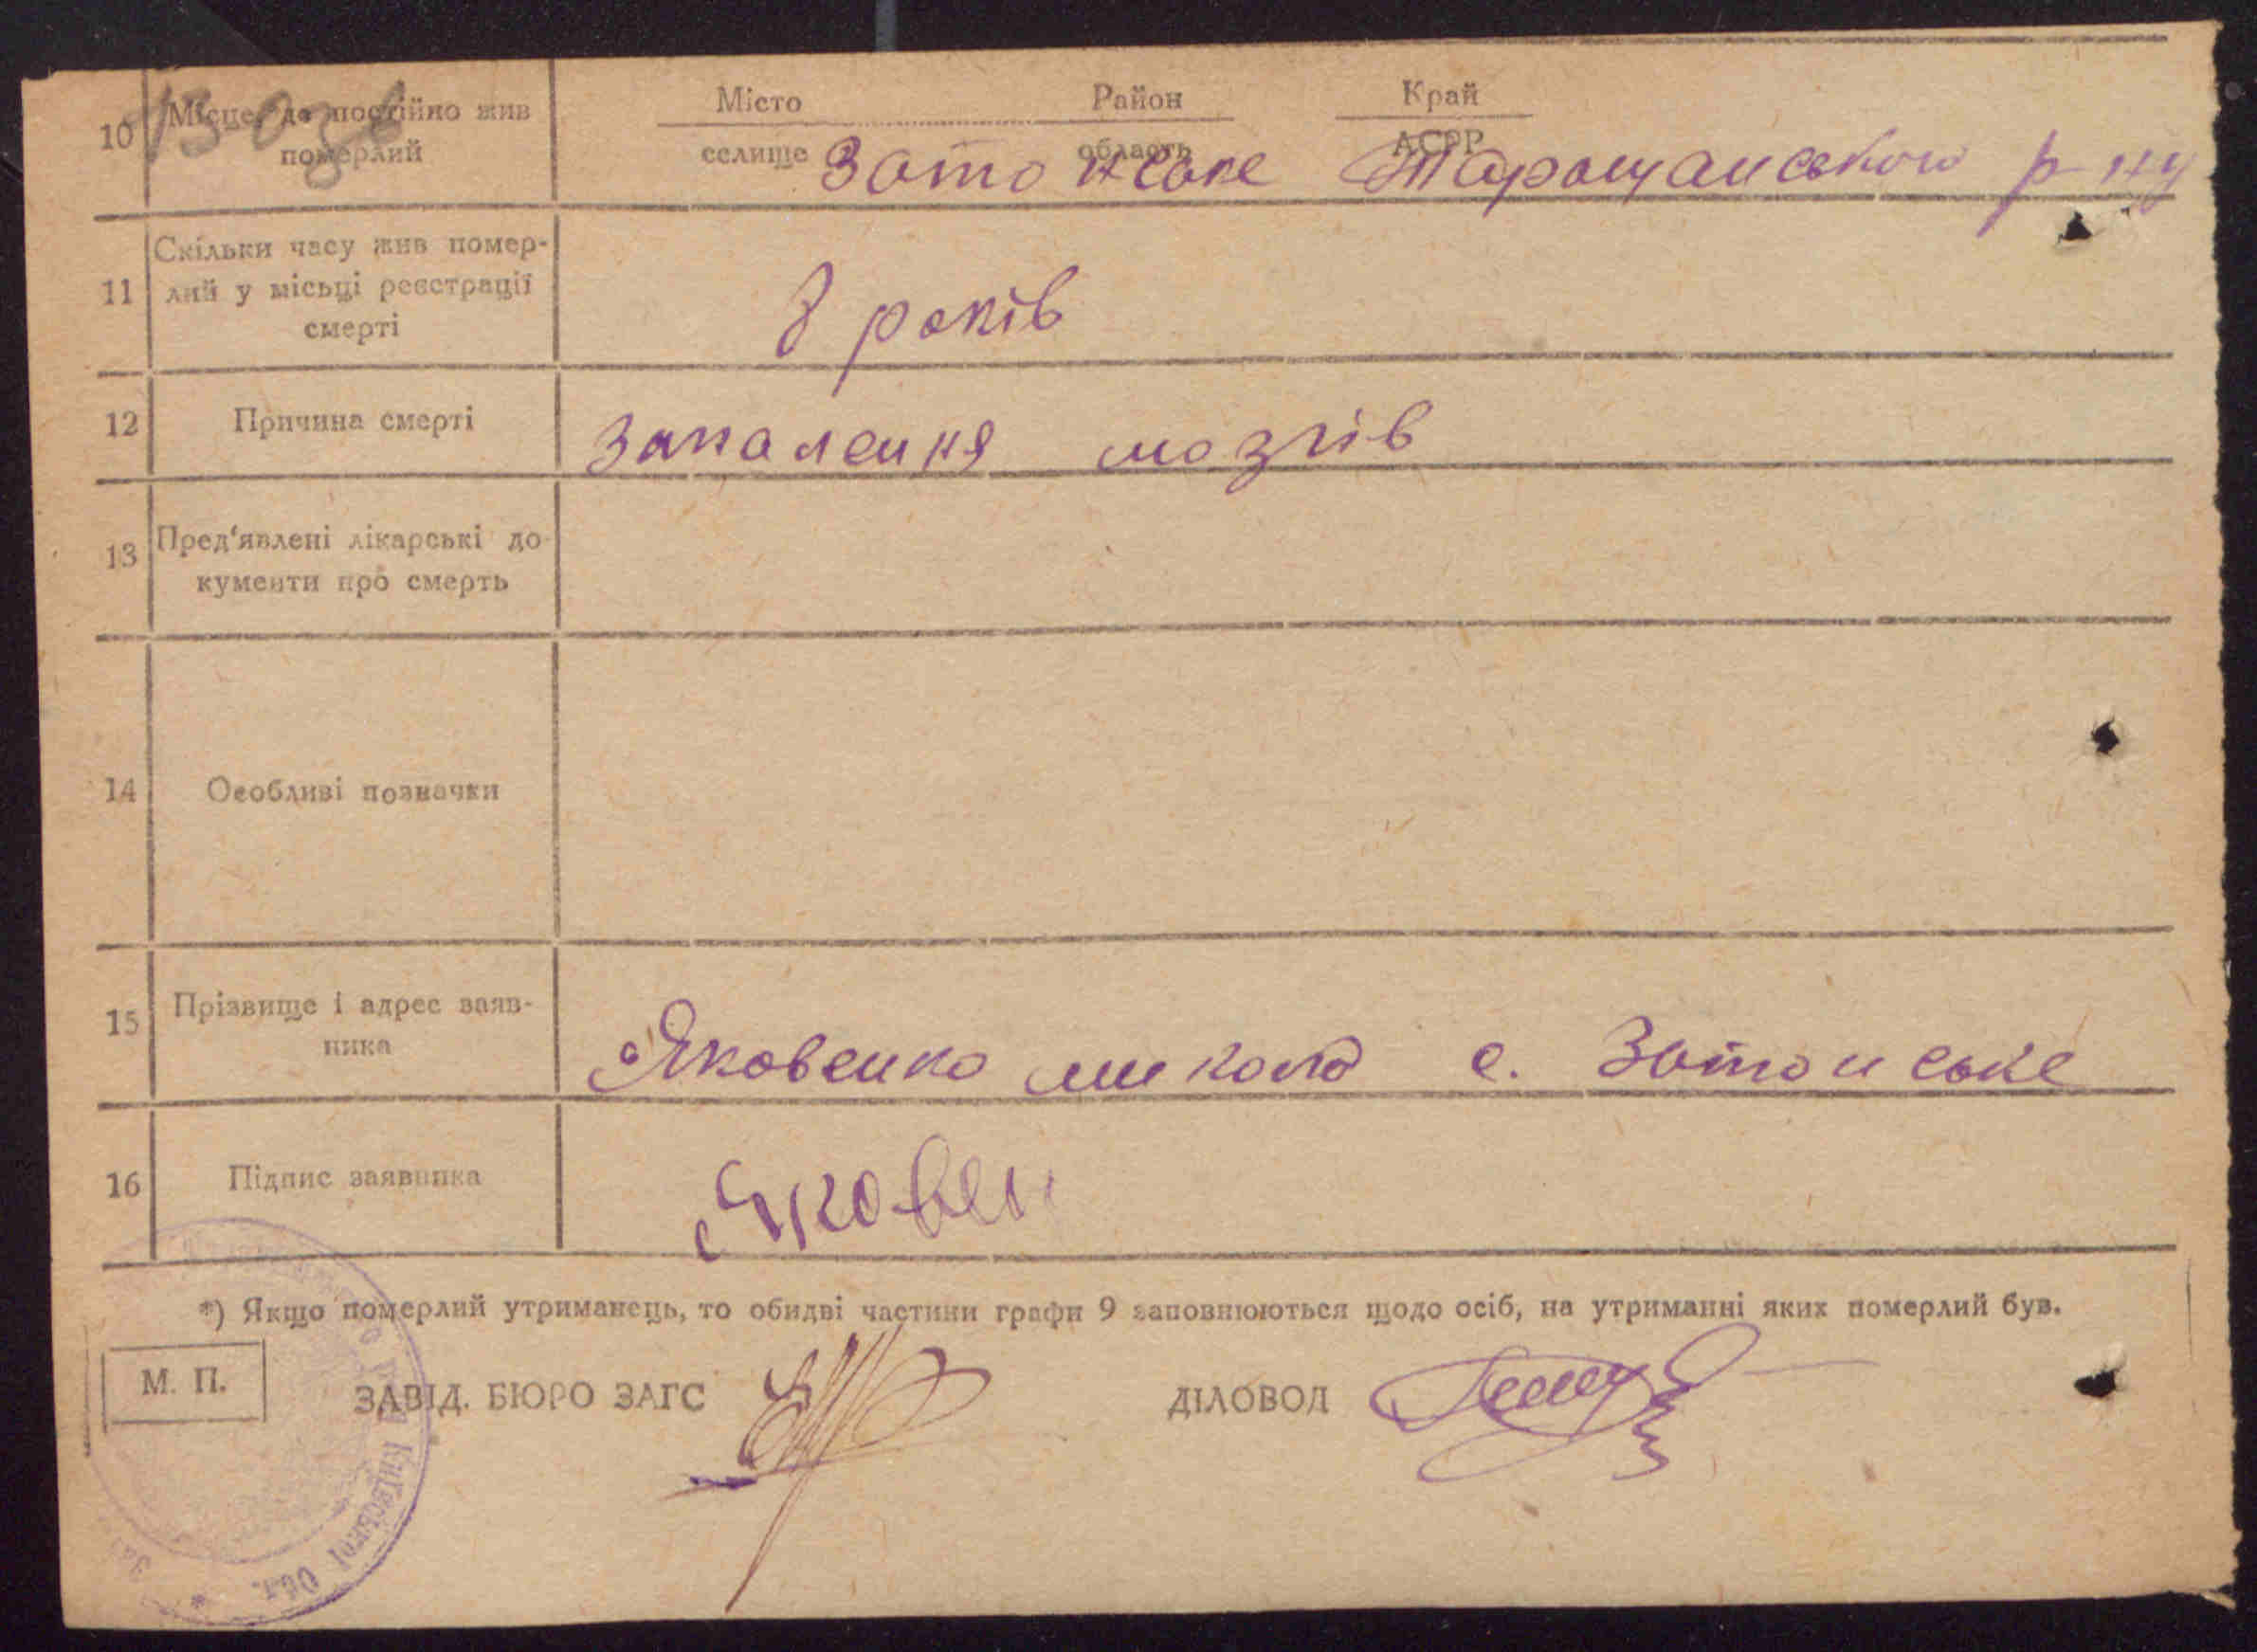 Місто Район Край
10 Місце де постійно жив
селище область АСРР
померлий
Затонське Таращанського р-ну
Скільки часу жив помер-
11 лий у місьці реєстрації
смерті
8 років
12 Причина смерті
Запалення мозгів
13 Пред'явлені лікарські до-
кументи про смерть
14 Особливі позначки
15 Прізвище і адрес заяв-
ника
Яковенко микола с. Затонське
16 Підпис заявника
Яковен
*) Якщо померлий утриманець, то обидві частини графи 9 заповнюються щодо осіб, на утриманні яких померлий був.
М. П.
ЗАВІД. БЮРО ЗАГС ДІЛОВОД
Київської Обл.